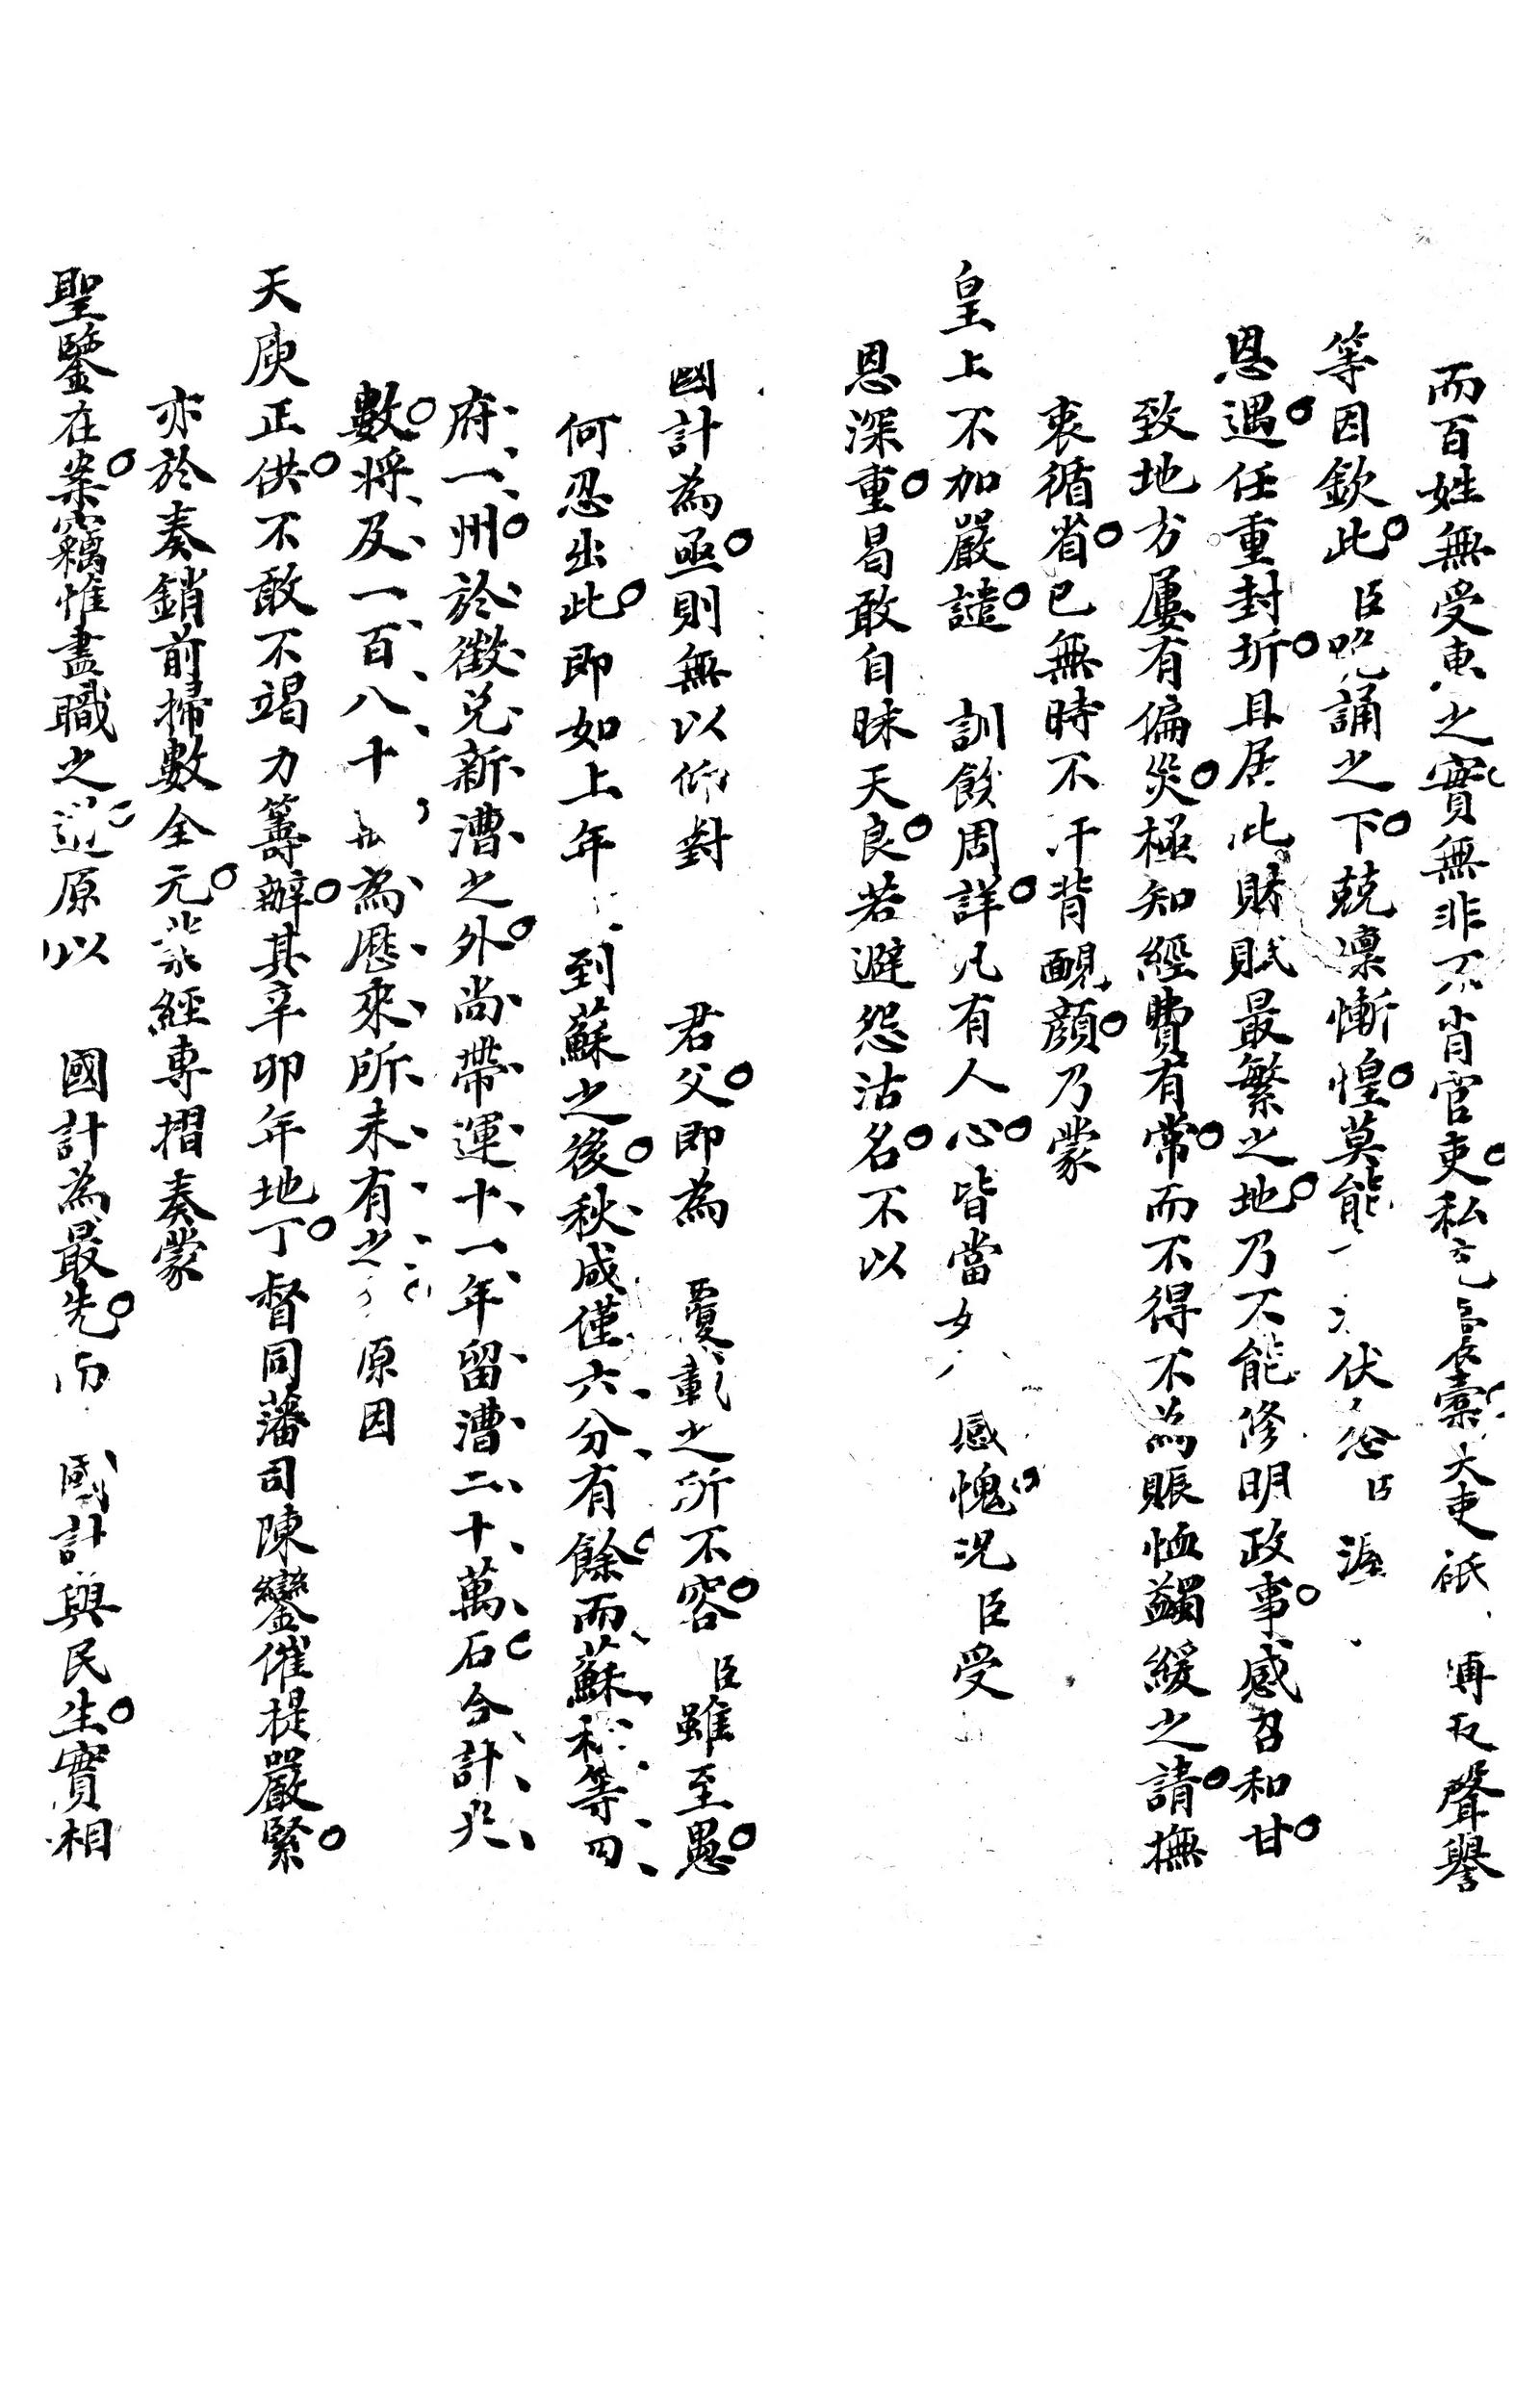 而百姓無受惠之實無非不肖官吏私大吏祇聲譽
等因欽此臣跪誦之下兢凜慚惶莫能伏念臣渥
恩遇任重封圻且居此財賦最繁之地乃不能修明政事感召和甘
致地方屢有偏災極知經費有常而不得不為賑恤蠲緩之請撫
衷循省已無時不汗背靦顏乃蒙
皇上不加嚴譴訓飭周詳凡有人心皆當感愧況臣受
恩深重曷敢自昧天良若避怨沽名不以
國計為亟則無以仰對君父即為覆載之所不容臣雖至愚
何忍出此即如上年到蘇之後秋成僅六分有餘而蘇松等四
府一州於徵兌新漕之外尚帶運十一年留漕二十萬石合計共
數將及一百八十為歷來所未有之原因
天庾正供不敢不竭力籌辦其辛卯年地丁督同藩司陳鑾催提嚴緊
亦於奏銷前掃數全完業經專摺奏蒙
聖鑒在案竊惟盡職之道原以國計為最先而國計與民生實相